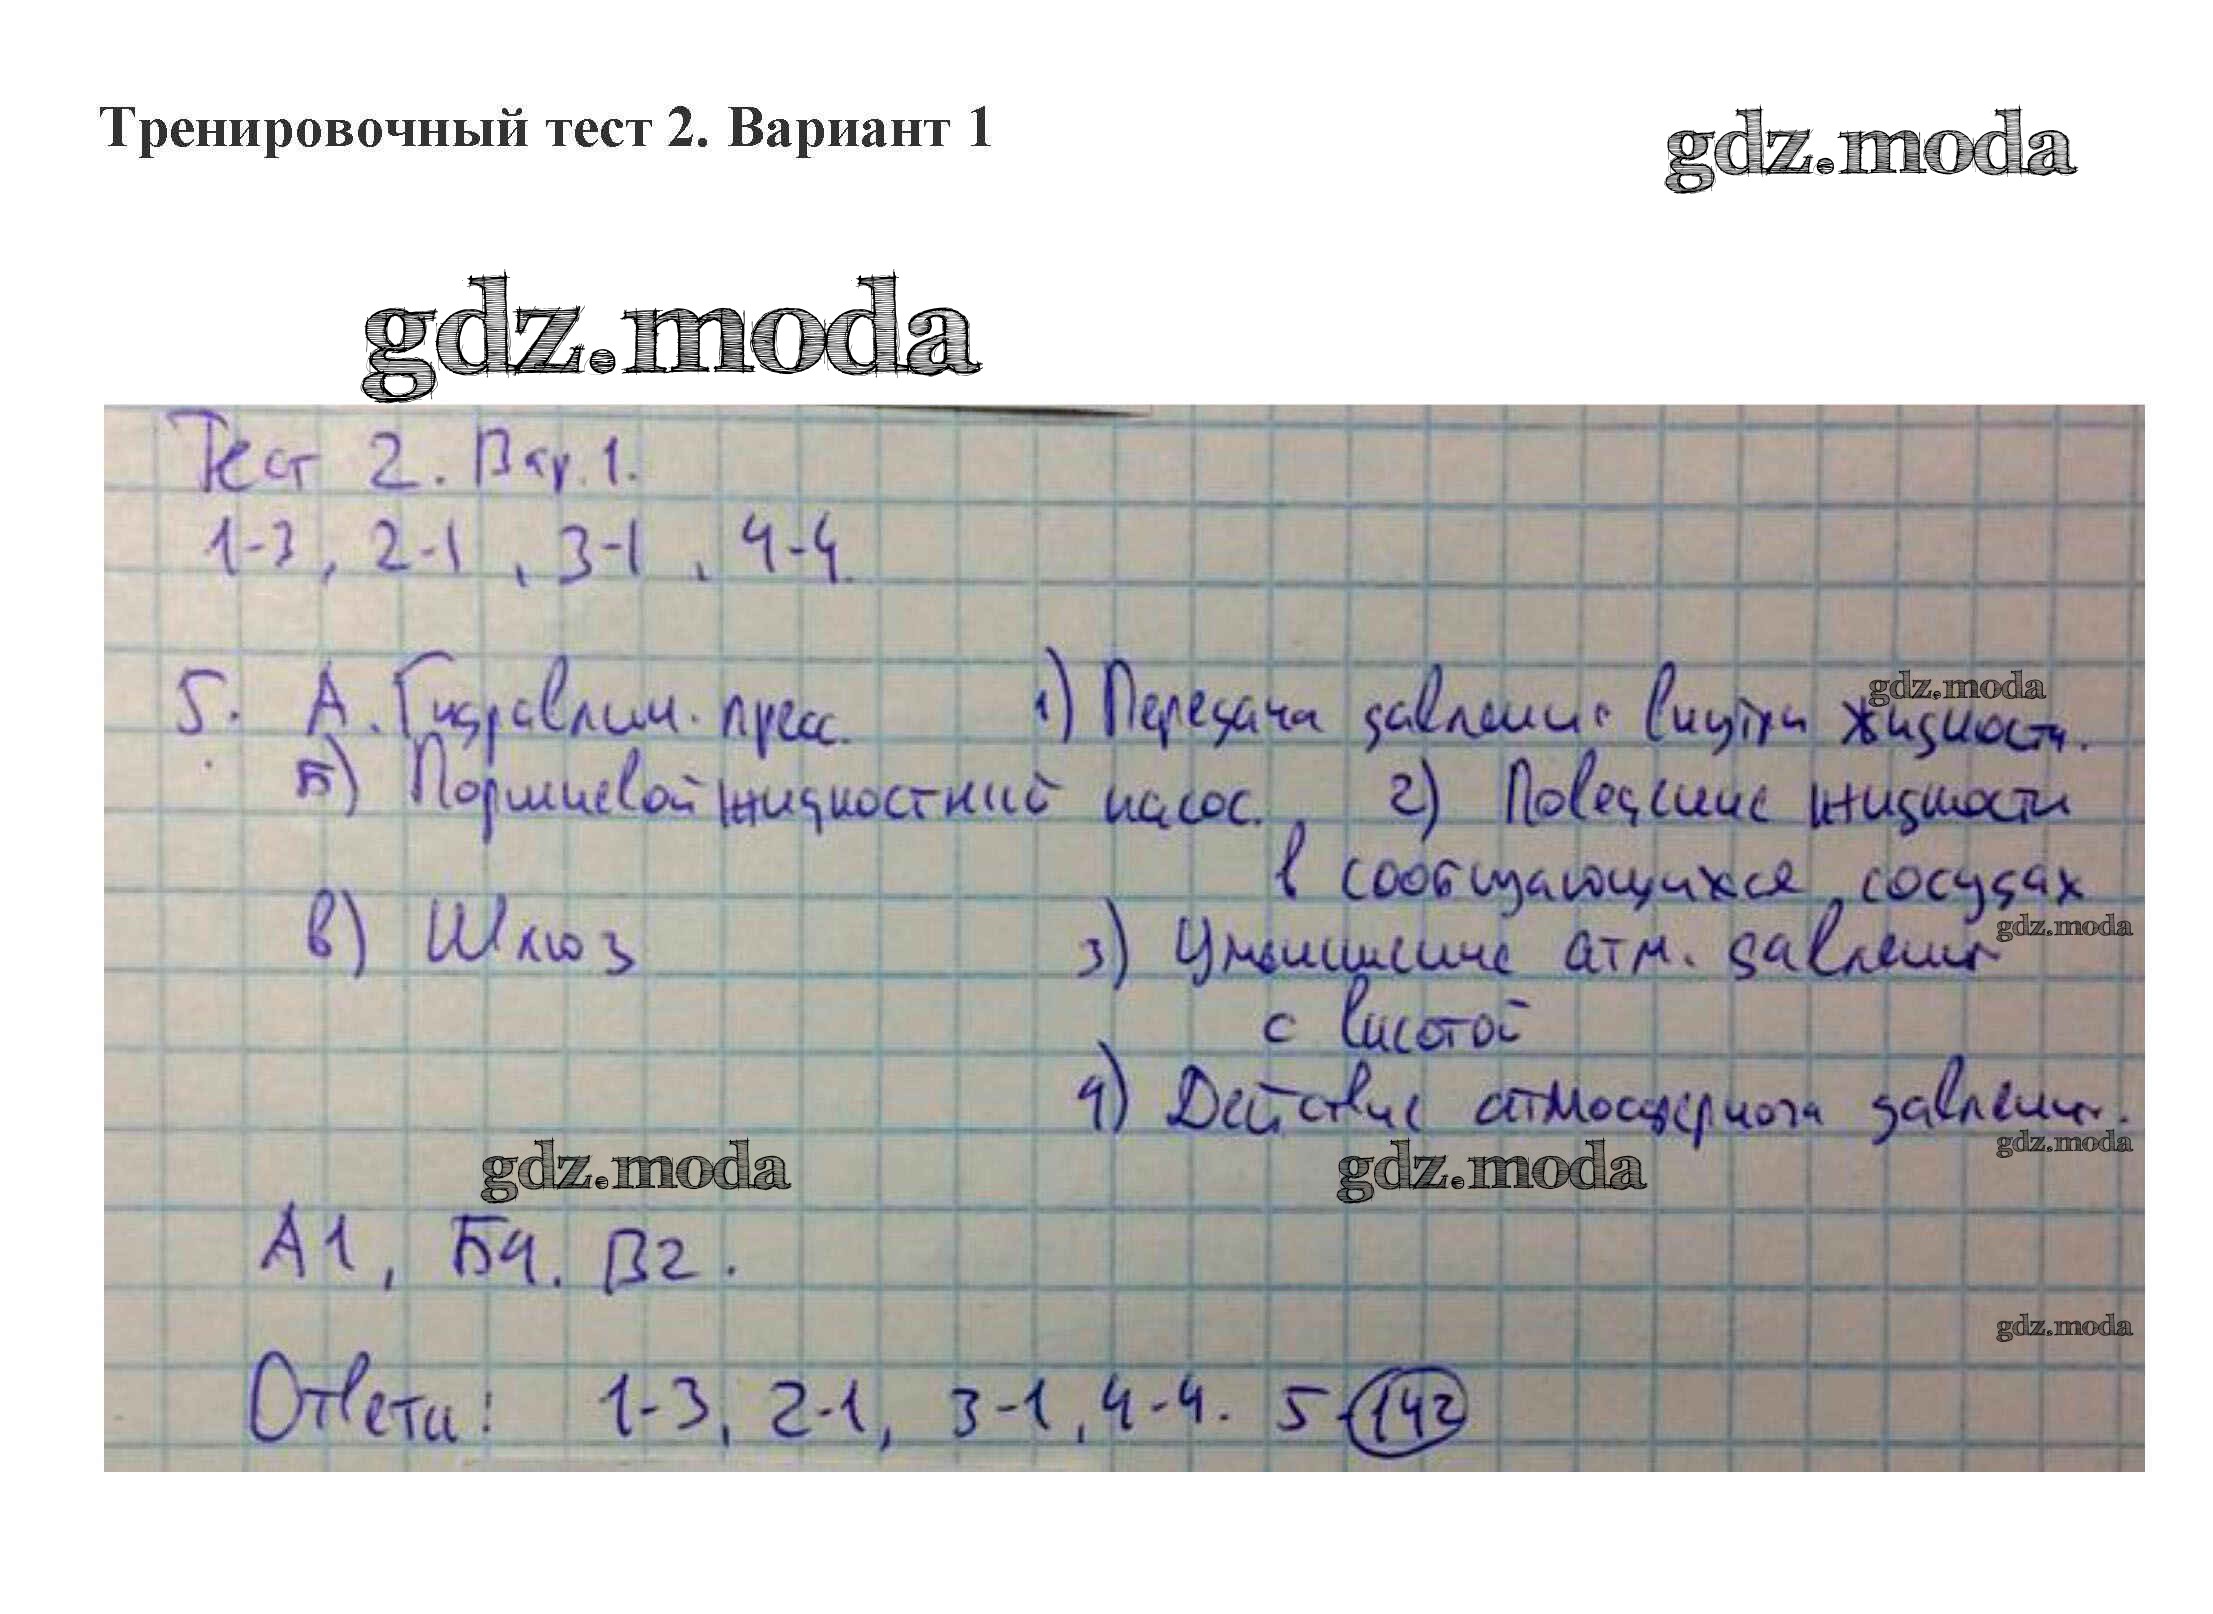 Тренировочный тест 2. Вариант 1
gdz.moda
gdz.moda
Тест 2. Вар. 1.
1-3, 2-1, 3-1, 4-4.
5. А. Гидравлич. пресс. 1) Передача давления внутри жидкости.
gdz.moda
Б) Поршневой жидкостный насос. 2) Поведение жидкости
в сообщающихся сосудах
В) Шлюз 3) Уменьшение атм. давления
gdz.moda
с высотой
4) Действие атмосферного давления.
gdz.moda
gdz.moda
gdz.moda
А1, Б4. В2.
gdz.moda
Ответы: 1-3, 2-1, 3-1, 4-4. 5-142